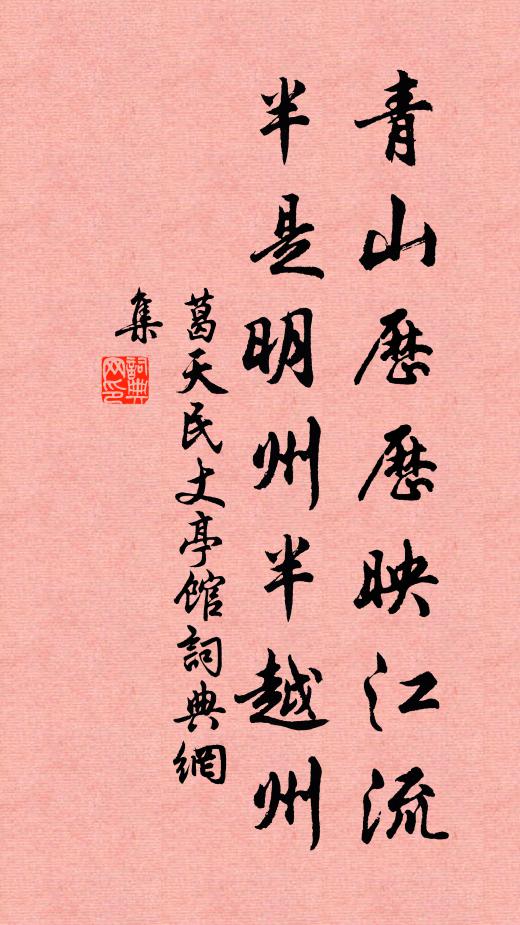 青山歷歷映江流
半是明州半越州
葛天民丈亭館詞典網
集
詞典
网印